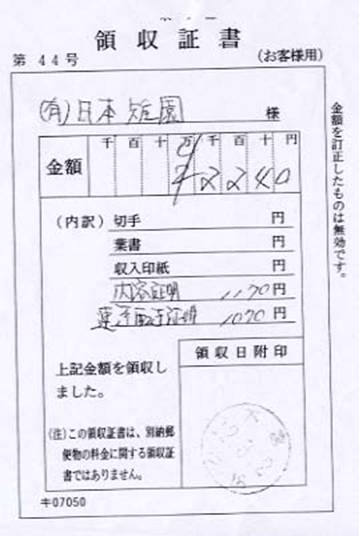 領収証書
第 44号
(お客様用)
(有)日本短園 様
金額
千 百 十 万 千 百 十 円
2240
(内訳) 切手 円
葉書 円
収入印紙 円
内容証明 1170円
1070円
上記金額を領収し
ました。
領収日附印
(注)この領収証書は、別納郵
便物の料金に関する領収証
書ではありません。
キ07050
金額を訂正したものは無効です。